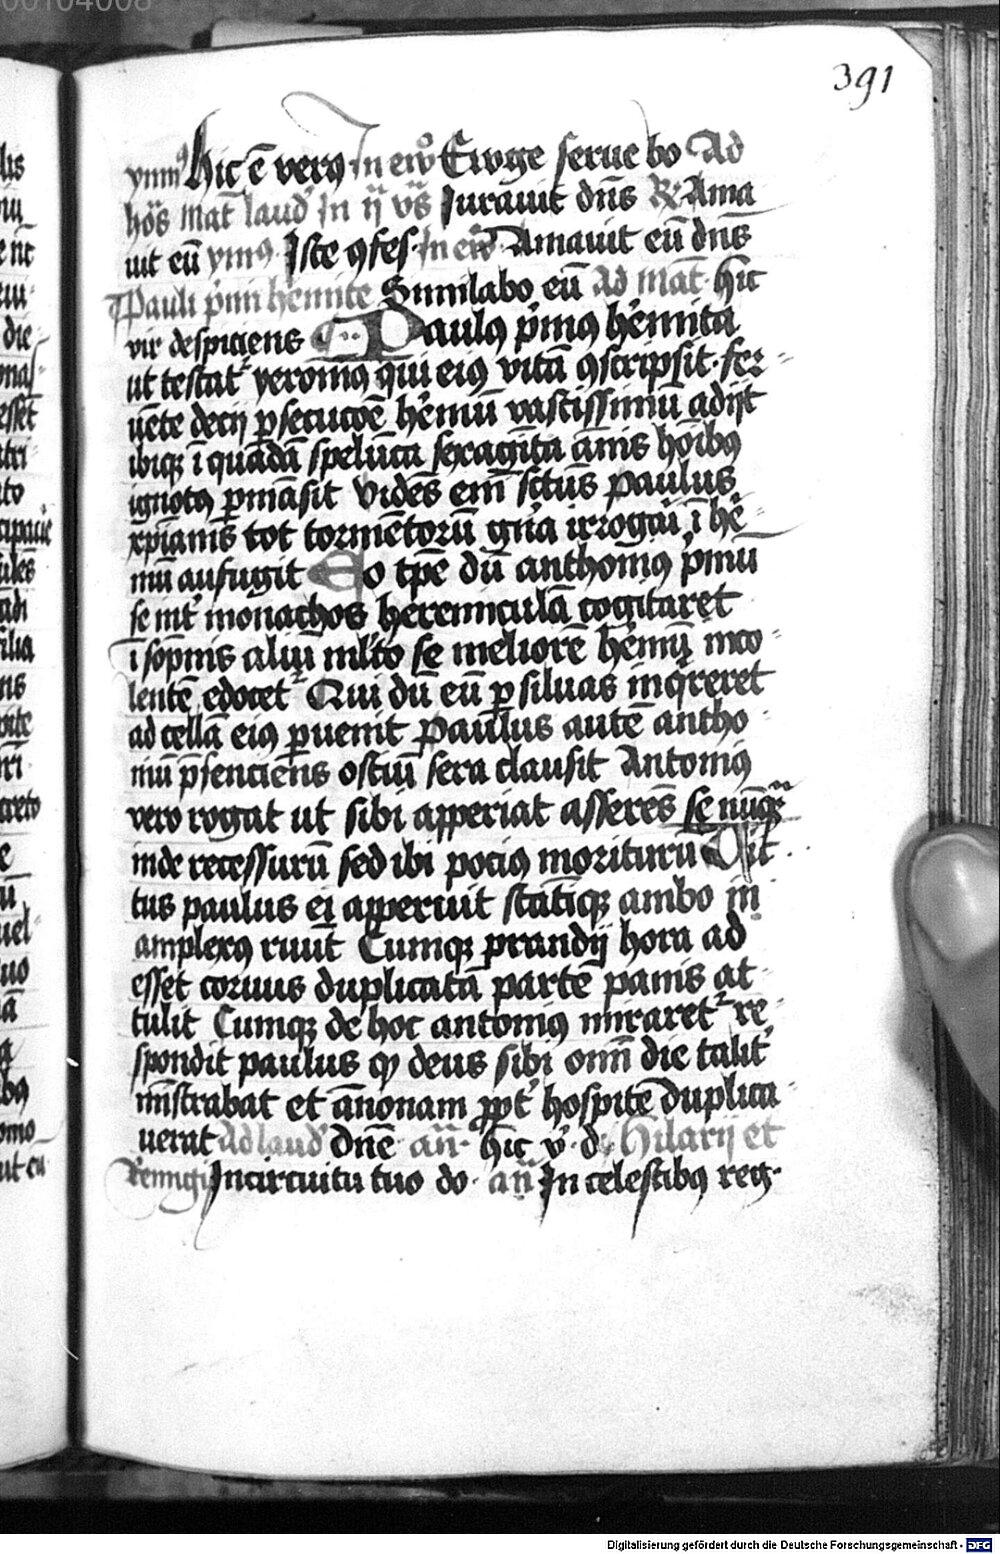 00104008
391
ymnꝰ Hic ē verꝰ In ew̄ Ewge serue bo Ad
hōs Mat̄ laud' In ij vs̄ Jurauit dn̄s R Ama
uit eū ymꝰ Iste ꝯfes In ew̄ Amauit eū dn̄s
Pauli p̄mi hēmite Similabo eū Ad Mat̄ hic
vir despiciens Paulꝰ p̄mꝰ hēmita
ut testat᷑ yeronimꝰ qui eiꝰ vitā ꝯscripsit fer
uēte decij ꝑsecutōe hēmū vastissimū adijt
ibiqꝫ ī quādā spelūca sexagīta ānis hoībꝰ
ignotꝰ ꝑmāsit Vidēs em̄ sctūs paulus
xp̄ianis tot tormētorū gn̄a irrogāi ī hē
mū aufugit Eo tp̄e dū anthoniꝰ p̄mū
se int᷑ monachos heremiculā cogitaret
ī sōpnis aliū mlto se meliorē hēmū inco
lentē edocet᷑ Qui dū eū ꝑ siluas inq̄reret
ad cellā eiꝰ ꝑuenit Paulus autē antho
niū p̄senciens ostiū sera clausit Antoniꝰ
vero rogat ut sibi apperiat asserēs se nūqꝫ
inde recessurū sed ibi pociꝰ moriturū Vic
tus paulus ei apperuit statīqꝫ ambo in
amplexꝰ ruūt Cumqꝫ prandij hora ad
esset coruus duplicatā partē panis at
tulit Cumqꝫ de hoc antoniꝰ miraret᷑ re
spondit paulus ꝙ deus sibi omī die talit᷑
mīstrabat et ānonam ꝓpt᷑ hospitē duplica
uerat Ad laud' Dn̄e an̄ hic v d Hilarij et
Remigij Incircuitu tuo do an̄ In celestibꝰ reg
Digitalisierung gefördert durch die Deutsche Forschungsgemeinschaft - DFG